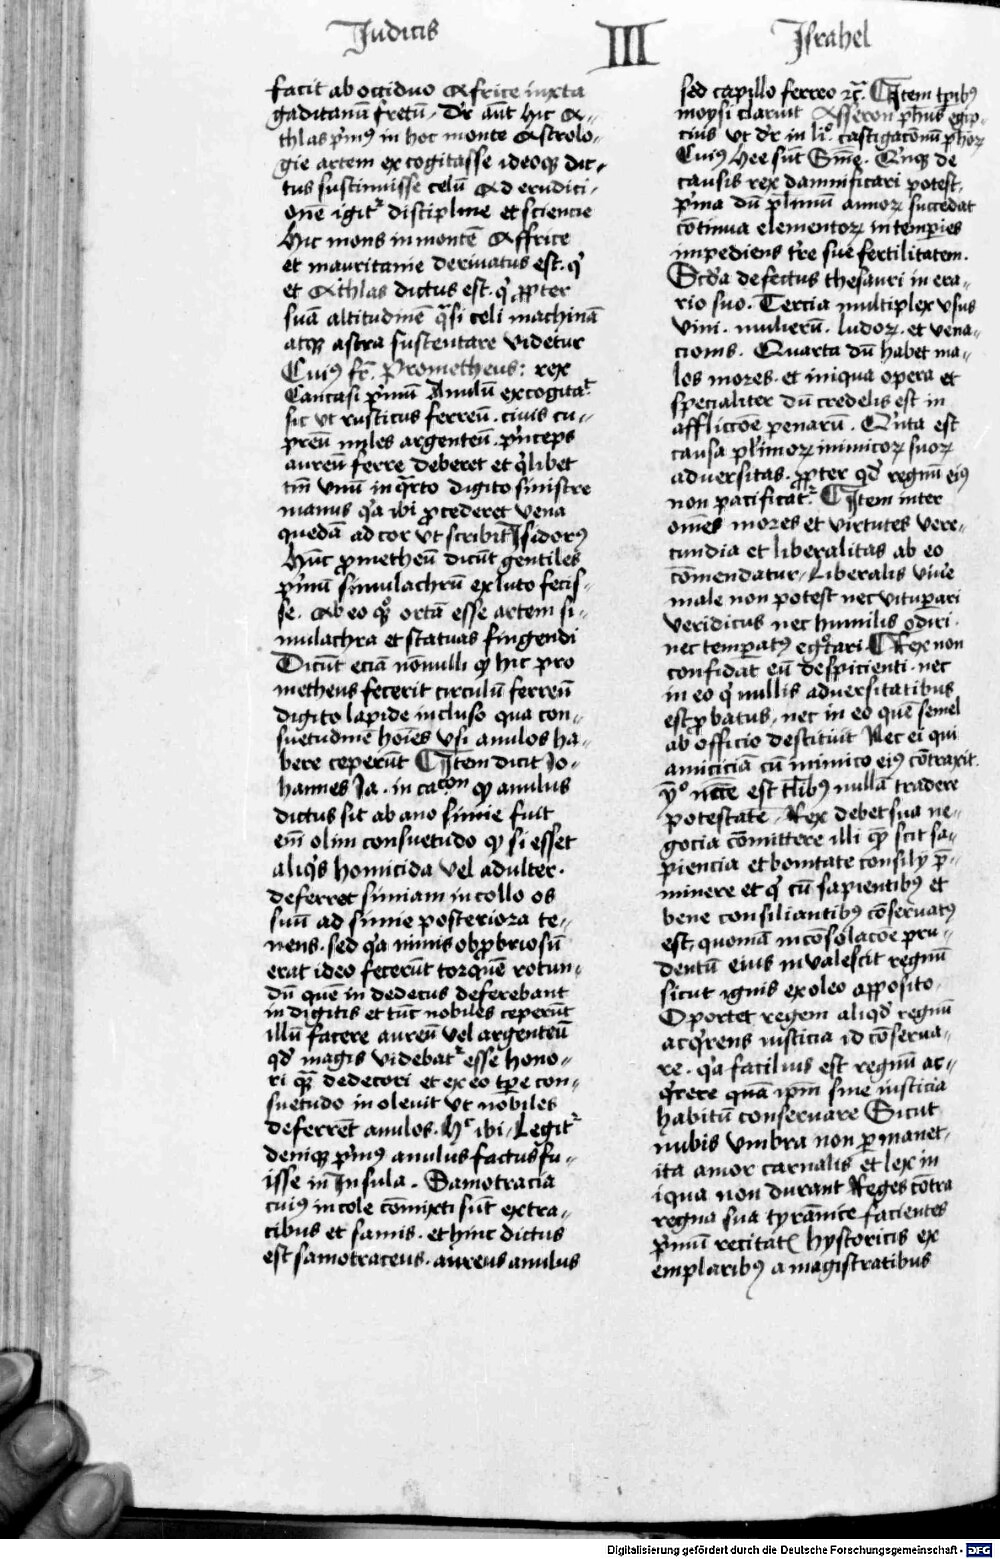 Judicis III Israhel
facit ab occiduo Affrice iuxta
gaditanū fretū. Dr̄ aūt hic A-
thlas p̄mꝰ in hoc monte Astrolo-
gie artem excogitasse ideoqꝫ dic-
tus sustinuisse celū Ad erudici-
onē igit᷑ discipline et sciencie
Hic mons in montē Affrice
et mauritanie derivatus est. qͥ
et Athlas dictus est. qͥ ꝓpter
suā altitudinē qͣsi celi machinā
atqꝫ astra sustentare videtur
Cuiꝰ fr̄. Prometheus: rex
Caucasi p̄mū Anulū excogitat᷑
sic ut rusticus ferreū. civis cu-
preū miles argenteū. p̄nceps
aureū ferre deberet et qͥlibet
tm̄ vnū in qͣrto digito sinistre
manus qͥa ibi ꝓcederet vena
quedā ad cor ut scribit Isidorꝰ
Hūc ꝓmetheū dicūt gentiles
p̄mū simulachrū ex luto fecis-
se. Ab eo qͦqꝫ ortā esse artem si-
mulachra et statuas fingendi
Dicūt eciā nōnulli qͥ hic pro
metheus fecerit circulū ferreū
digito lapide incluso qua con-
suetudinē hoīes vsi anulos ha-
bere ceperūt Item dicit Jo-
hannes Ja. in cacon qͥ anulus
dictus sit ab ano simie fuit
em̄ olim consuetudo qͥ si esset
aliqͥs homicida vel adulter.
deferret simiam in collo os
suū ad simie posteriora te-
nens. sed qͥa nimis obꝓbriosū
erat ideo fecerūt torquē rotun-
dū quē in dedecus deferebant
in digitis et tūc nobiles ceperūt
illū facere aureū vel argenteū
qd̄ magis videbat᷑ esse hono-
ri qͣm dedecori et ex eo tp̄e con-
suetudo inolevit ut nobiles
deferrēt anulos. Hͨ ibi. Legit᷑
deniqꝫ p̄mꝰ anulus factus fu-
isse in Insula. Samotracia
cuiꝰ incole cōmixti sūt ex tra-
cibus et samis. et hinc dictus
est samotraceus. aureus anulus
sed capillo ferreo ⁊c̄. Item tp̄ibꝰ
moysi claruit Asseron ph̄us egip-
cius vt dr̄ in liͦ. castigacōnū ph̄oꝝ
Cuiꝰ hee sūt Sm̄e. Qͥnqꝫ de
causis rex damnificari potest.
p̄ma dū pl̄imū annoꝝ succedat
cōtinua elementoꝝ intemperies
impediens tr̄e sue fertilitatem.
Scd̄a defectus thesauri in era-
rio suo. Tercia multiplex vsus
vini. mulierū. ludoꝝ. et vena-
cionis. Quarta dū habet ma-
los mores. et iniqua opera et
specialiter dū credelis est in
afflictiōe penarū. Qͥnta est
causa pl̄imoꝝ inimicoꝝ suoꝝ
adversitas. ꝓpter qd̄ regnū eiꝰ
non pacificat᷑ Item inter
omēs mores et virtutes vere-
cundia et liberalitas ab eo
cōmendatur. Liberalis vive
male non potest nec vituꝑari
veridicus nec humilis odiri.
nec temperatꝰ egͦtari Rex non
confidat eū despicienti. nec
in eo qͥ nullis adversitatibus
est ꝓbatus. nec in eo quē semel
ab officio destituit Nec ei qui
amiciciā cū inimico eiꝰ cōtraxit.
vͦ necc̄e est tl̄ibꝰ nullā tradere
potestatē. Rex debet sua ne-
gocia cōmittere illi quē scit sa-
piencia et bonitate consilij p̄-
minere et qͥ cū sapientibꝰ et
bene consiliantibꝰ cōservatꝰ
est. quoniā in cōsolacōe pru-
dentū eius invalescit regnū
sicut ignis ex oleo apposito.
Oportet regem aliqd̄ regnū
acqͥrens iusticia id cōserva-
re. qͥa facilius est regnū ac-
qͥrere quā ipm̄ sine iusticia
habitū conservare Sicut
nubis vmbra non ꝑmanet.
ita amor carnalis et lex in
iqua non durant Reges cōtra
regna sua tyrānice facientes
p̄mū recitat᷑ hystoricis ex
emplaribꝰ a magistratibus
Digitalisierung gefördert durch die Deutsche Forschungsgemeinschaft - DFG